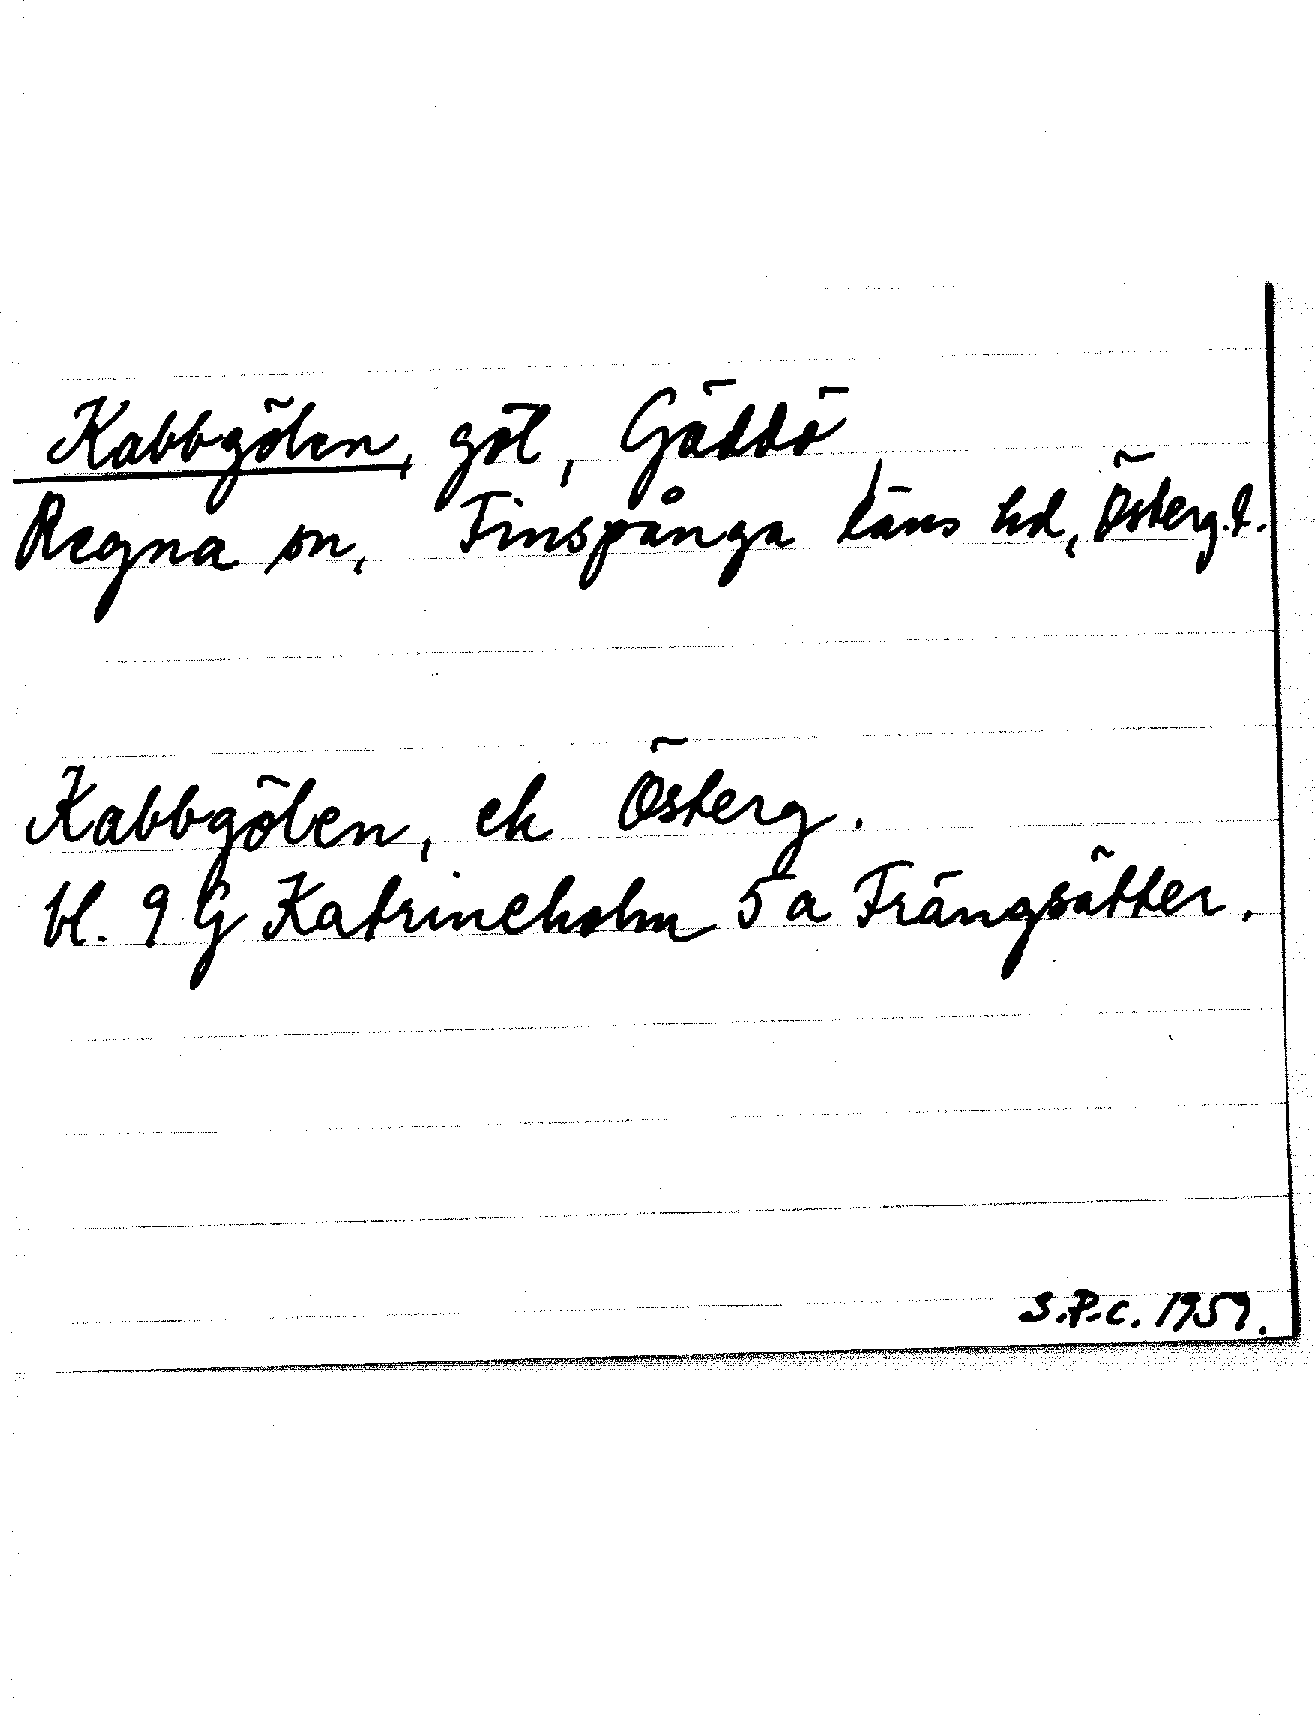 Kabbgölen, göl, Gäddö,
Regna sn, Finspånga läns hd, Österg.l.
Kabbgölen, ek Österg.
bl. 9 G Katrineholm 5 a Trängsätter.
S.P.C. 1959.